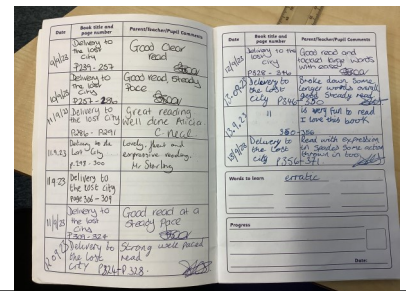 Date
Book title and
page number
Parent/Teacher/Pupil Comments
9/9/23
Delivery to
the lost
city
P239 - 257
Good Clear
read
10/9/23
Delivery to
the lost
city
P257 - 286
Good read, steady
Pace
11/9/23
Delivery to
the lost city
P286 - P291
Great reading
well done Alicia
C. neal
11.9.23
Delivery to the
Lost City
p.293 - 300
Lovely, fluent and
expressive reading,
Mr Starling
11.9.23
Delivery to
the lost city
page 306 - 309
11/9/23
Delivery to
the lost
City
P309 - 324
Good read at a
Steady Pace
12.09.23
Delivery to
the Lost
City P324 - P328.
Strong well paced
read
Date
Book title and
page number
Parent/Teacher/Pupil Comments
12/9/23
Delivery to the
lost city
P328 - 346
Good read and
tackled large words
with ease
13.09.23
Delivery to
the Lost
City P346 - 350
Broke down Some
longer words overall
good Steady read
13.9.23
11
350 - 356
is very fun to read
I love this book
Delivery to
the Lost
City P356 - 371
Read with expression
in Spades Some action
thrown in too.
Words to learn
erratic
Progress
Date: